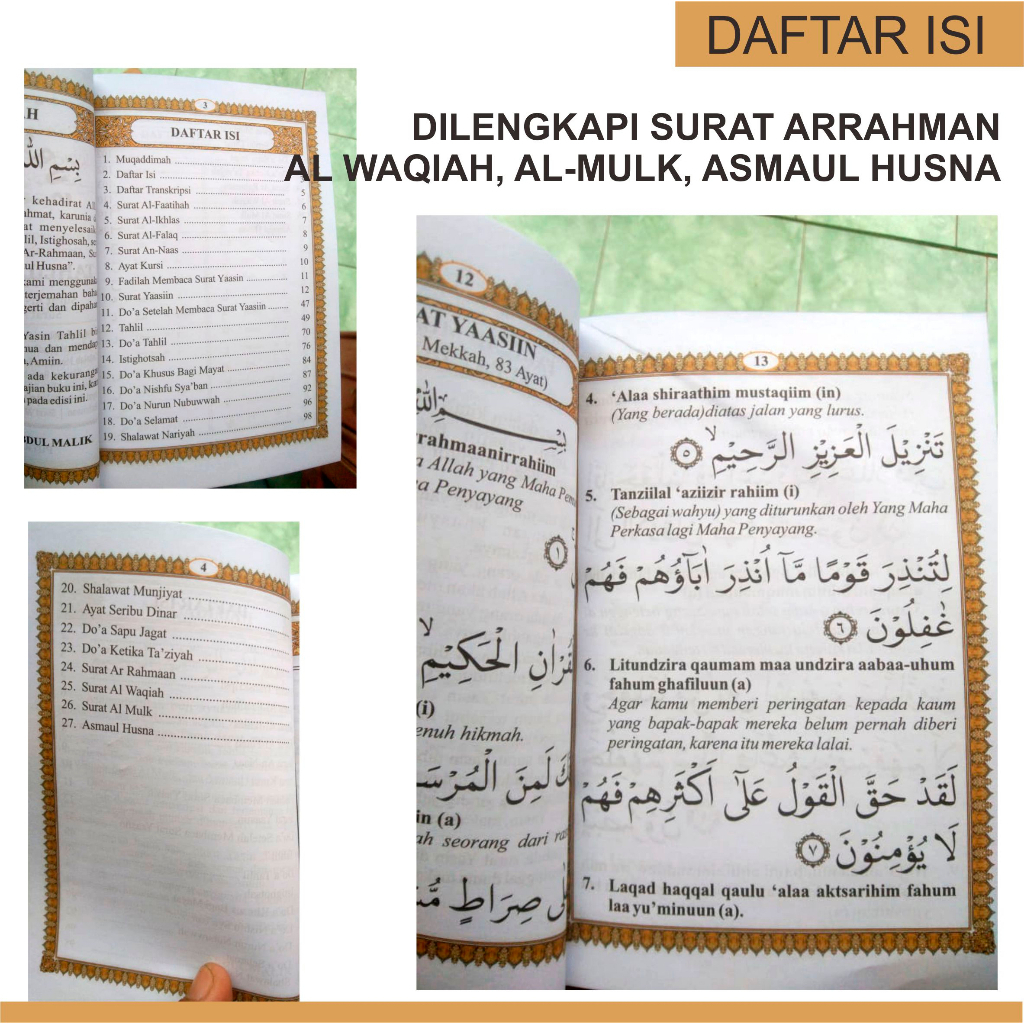 DAFTAR ISI
DILENGKAPI SURAT ARRAHMAN
AL WAQIAH, AL-MULK, ASMAUL HUSNA
3
AH
DAFTAR ISI
1. Muqaddimah
2. Daftar Isi
3. Daftar Transkripsi 5
4. Surat Al-Faatihah 6
5. Surat Al-Ikhlas 7
6. Surat Al-Falaq 8
7. Surat An-Naas 9
8. Ayat Kursi 10
9. Fadilah Membaca Surat Yaasin 11
10. Surat Yaasiin 12
11. Do'a Setelah Membaca Surat Yaasiin 47
12. Tahlil 49
13. Do'a Tahlil 70
14. Istighotsah 76
15. Do'a Khusus Bagi Mayat 84
16. Do'a Nishfu Sya'ban 87
17. Do'a Nurun Nubuwwah 92
18. Do'a Selamat 96
19. Shalawat Nariyah 98
بِسْمِ اللّٰهِ
kehadirat
ahmat, karunia
at menyelesaik
lil, Istighosah, se
Ar-Rahmaan, Su
ul Husna".
kami menggunak
terjemahan baha
gerti dan dipaha
Yasin Tahlil bi
nua dan mendap
, Amiin.
ada kekuranga
ajian buku ini, kam
pada edisi ini.
BDUL MALIK
4
20. Shalawat Munjiyat
21. Ayat Seribu Dinar
22. Do'a Sapu Jagat
23. Do'a Ketika Ta'ziyah
24. Surat Ar Rahmaan
25. Surat Al Waqiah
26. Surat Al Mulk
27. Asmaul Husna
12
AT YAASIIN
Mekkah, 83 Ayat)
بِسْــمِ اللّٰهِ
rrahmaanirrahiim
a Allah yang Maha Pem
a Penyayang
١
قُرْاٰنِ الْحَكِيْمِ
(i)
enuh hikmah.
كَ لَمِنَ الْمُرْسَ
in (a)
ah seorang dari ras
عَلٰى صِرَاطٍ مُّ
13
4. 'Alaa shiraathim mustaqiim (in)
(Yang berada)diatas jalan yang lurus.
تَنْزِيْلَ الْعَزِيْزِ الرَّحِيْمِۙ ٥
5. Tanziilal 'aziizir rahiim (i)
(Sebagai wahyu) yang diturunkan oleh Yang Maha
Perkasa lagi Maha Penyayang.
لِتُنْذِرَ قَوْمًا مَّآ اُنْذِرَ اٰبَاۤؤُهُمْ فَهُمْ
غٰفِلُوْنَ ٦
6. Litundzira qaumam maa undzira aabaa-uhum
fahum ghafiluun (a)
Agar kamu memberi peringatan kepada kaum
yang bapak-bapak mereka belum pernah diberi
peringatan, karena itu mereka lalai.
لَقَدْ حَقَّ الْقَوْلُ عَلٰٓى اَكْثَرِهِمْ فَهُمْ
لَا يُؤْمِنُوْنَ ٧
7. Laqad haqqal qaulu 'alaa aktsarihim fahum
laa yu'minuun (a).